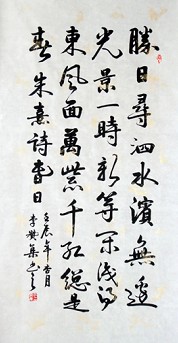 勝日尋泗水濱無邊
光景一時新等闲識得
東風面萬紫千红總是
春朱熹詩春日
壬辰年杏月